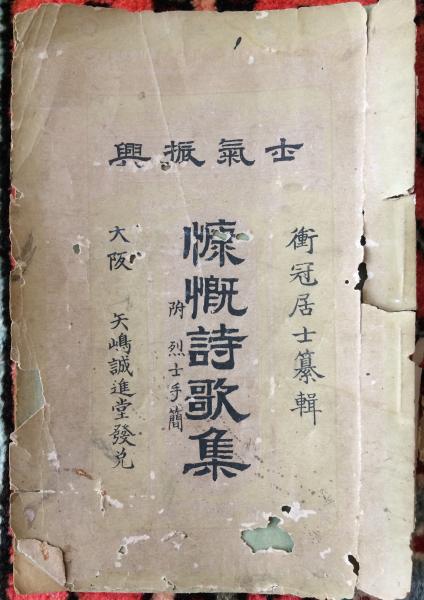 士氣振興
衝冠居士纂輯
慷慨詩歌集
附 烈士手簡
大阪 矢嶋誠進堂發兌